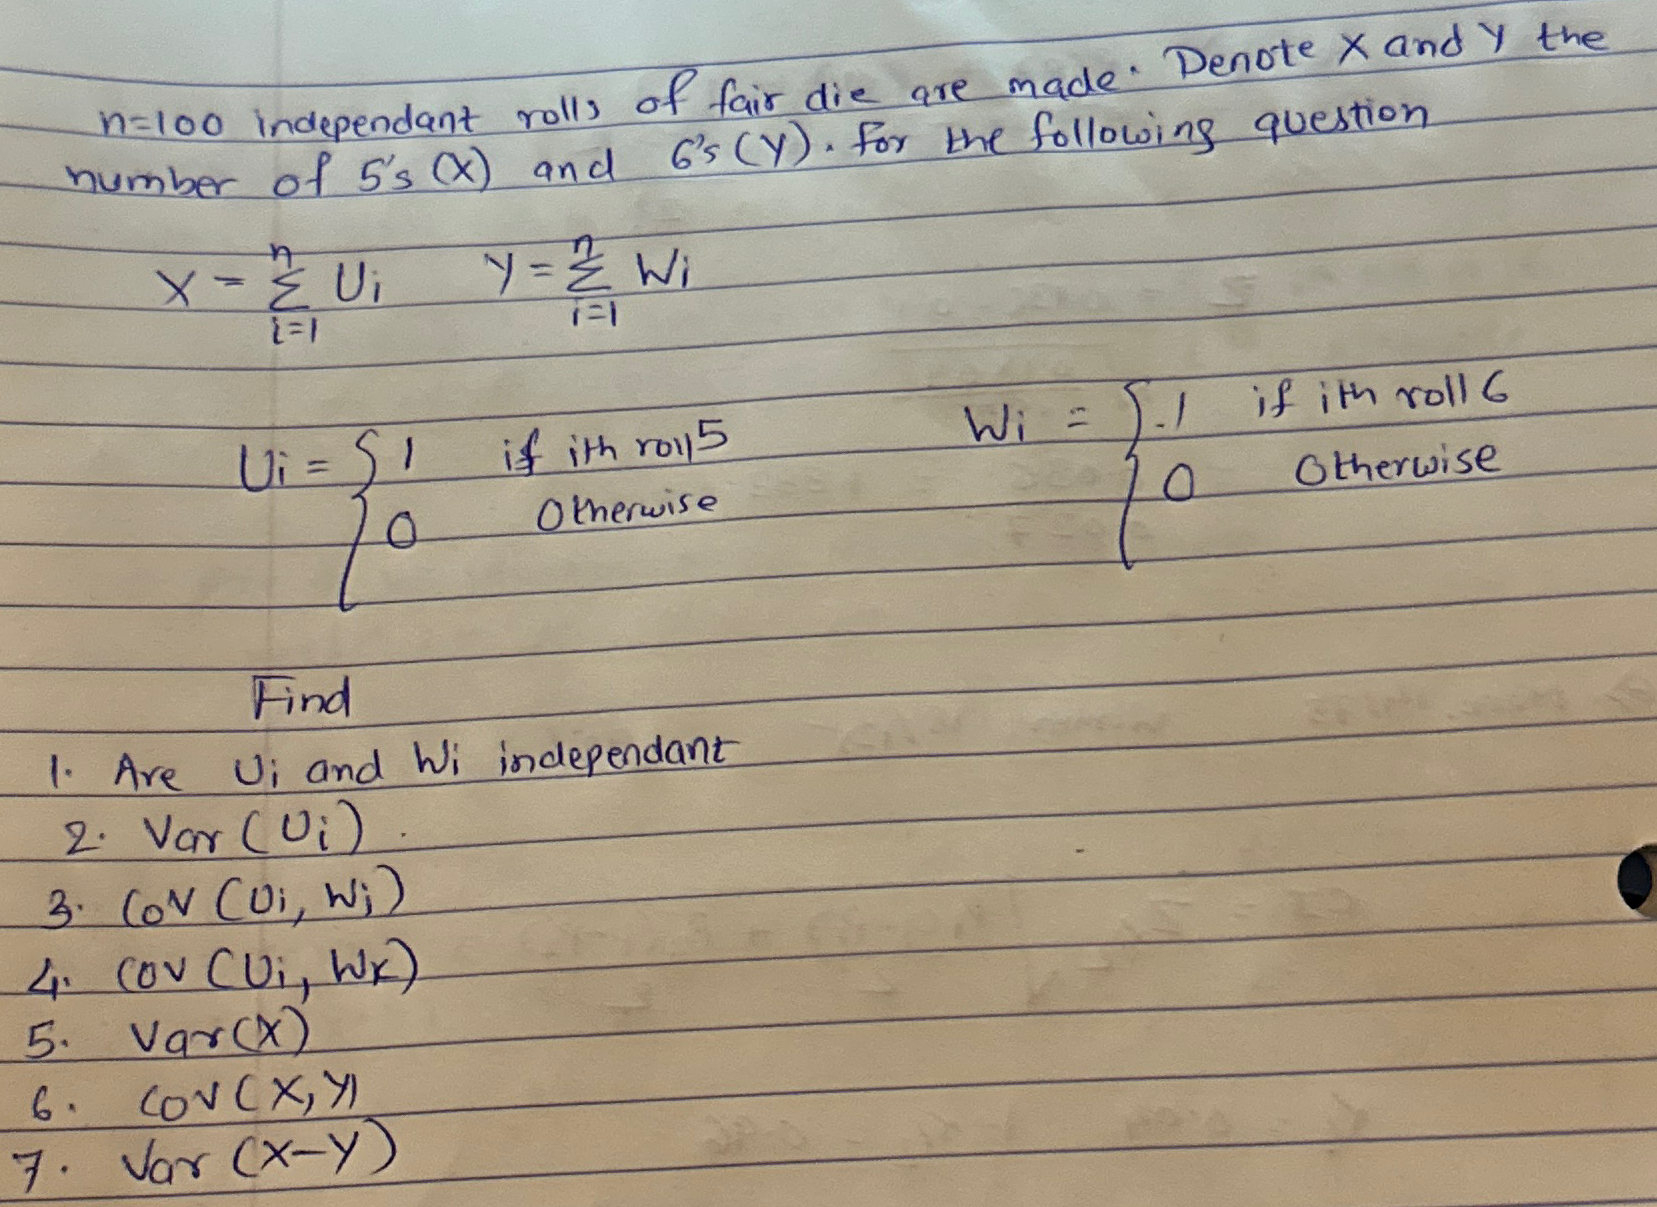 n=100 independant rolls of fair die are made. Denote X and Y the
number of 5's (X) and 6's (Y). For the following question
X = n Σ i=1 Ui Y = n Σ i=1 Wi
Ui = { 1 if ith roll 5 Wi = { .1 if ith roll 6
0 Otherwise 0 Otherwise
Find
1. Are Ui and Wi independant
2. Var (Ui).
3. COV (Ui, Wi)
4. COV (Ui, Wk)
5. Var(X)
6. COV (X, Y)
7. Var (X-Y)